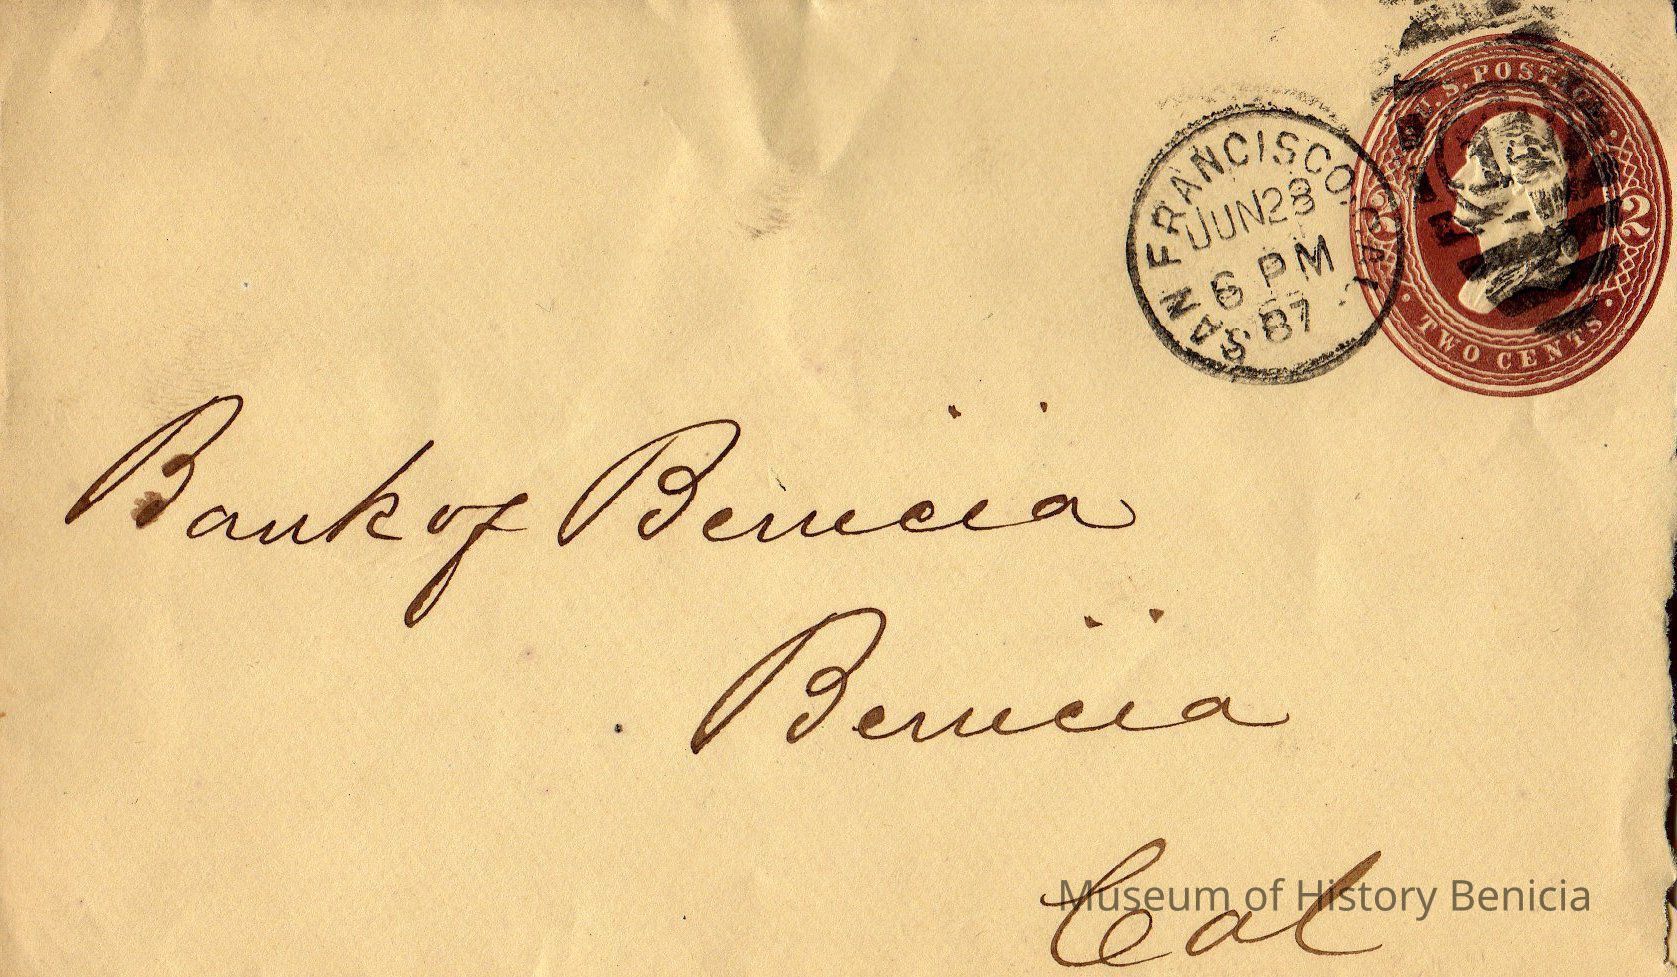 U.S. POSTAGE
2 2
TWO CENTS
SAN FRANCISCO, CAL.
JUN 28
6 PM
87
Bank of Benicia
Benicia
Cal
Museum of History Benicia